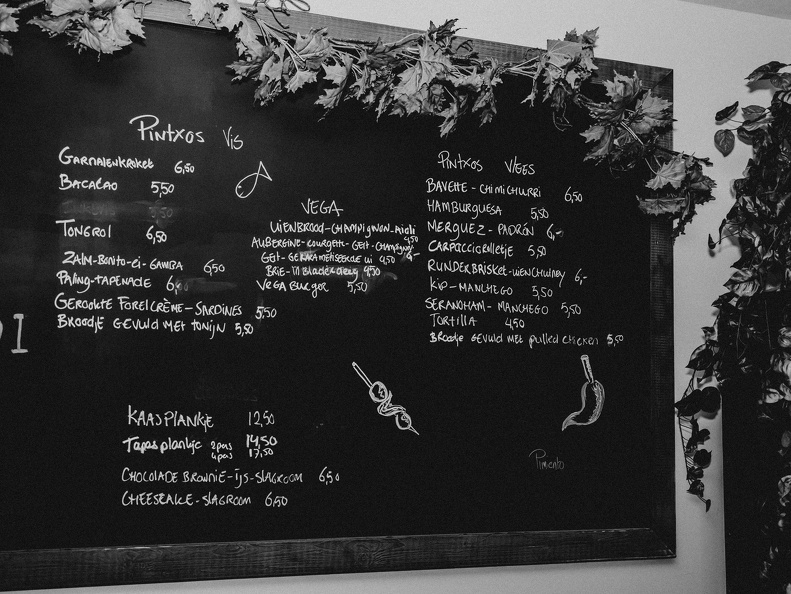 Pintxos Vis
Garnalenkroket 6,50
Bacalao 5,50
Tongrol 6,50
Zalm-Bonito-ei-Gamba 6,50
Paling-Tapenade 6,
Gerookte Forelcrème-Sardines 5,50
Broodje gevuld met tonijn 5,50
VEGA
Uienbrood-Champignon-Aioli 4,50
Aubergine-Courgette-Geit-Champignon
Geit-Gekarameliseerde ui 4,50
Brie- 4,50
Vega Burger 5,50
Pintxos Vlees
Bavette-Chimichurri 6,50
Hamburguesa 5,50
Merguez-Padrón 6,-
Carpacciorolletje 5,50
Runderbrisket-uienchutney 6,-
Kip-Manchego 5,50
Seranoham-Manchego 5,50
Tortilla 4,50
Broodje gevuld met pulled chicken 5,50
Kaasplankje 12,50
Tapasplankje 2pers 14,50
4pers 17,50
Chocolade Brownie-ijs-slagroom 6,50
Cheesecake-slagroom 6,50
Pimiento